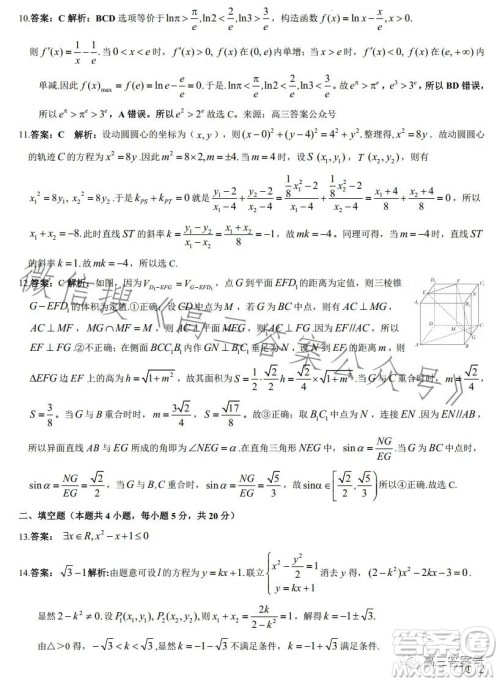 10.答案：C 解析：BCD 选项等价于 lnπ>π/e, ln2<2/e, ln3>3/e，构造函数 f(x)=lnx-x/e, x>0.
则 f′(x)=1/x-1/e. 当 0<x<e 时，f′(x)>0，f(x) 在 (0,e) 内单增；当 x>e 时，f′(x)<0，f(x) 在 (e,+∞) 内
单减.因此 f(x)max=f(e)=lne-e/e=0. 于是，lnπ<π/e, ln2<2/e, ln3<3/e. 故 e^π>π^e, e^3>3^e，所以 BD 错误，
所以 e^π>π^e>3^e，A 错误。所以 故选 C。来源：高三答案公众号
11.答案：C 解析：设动圆圆心的坐标为 (x,y)，则 (x-0)²+(y-4)²=4²+y². 整理得，x²=8y. 故动圆圆心
的轨迹 C 的方程为 x²=8y. 因此 m²=8×2, m=±4. 当 m=4 时，设 S (x₁,y₁)，T (x₂,y₂)，则有
x₁²=8y₁, x₂²=8y₂. 于是 k_PS+k_PT=0 就是 (y₁-2)/(x₁-4)+(y₂-2)/(x₂-4)=(1/8x₁²-2)/(x₁-4)+(1/8x₂²-2)/(x₂-4)=(x₁+4)/8+(x₂+4)/8=0. 所以
x₁+x₂=-8. 此时直线 ST 的斜率 k=(y₁-y₂)/(x₁-x₂)=(x₁+x₂)/8=-1. 故 mk=-4。同理可得，当 m=-4 时，直线 ST
的斜率 k=1. 故 mk=-4，所以选 C.
12.答案：C 解析：如图，因为 V_D₁-EFG=V_G-EFD₁，点 G 到平面 EFD₁ 的距离为定值，则三棱锥
D₁-EFG 的体积为定值.①正确；设 DC 中点为 M，若 G 为 BC 中点，则有
AC⊥MF，MG∩MF=M，所以 AC⊥平面MGF，所以 AC⊥FG. 因为 EF//AC，所以
EF⊥FG.②不正确；在侧面 BCC₁B₁ 内作 GN⊥B₁C₁ 于 N，设 N 到 EF 的距离 m，则
ΔEFG 边 EF 上的高为 h=√(1+m²)，故其面积为 S=1/2·√2/2 h=√2/4×√(1+m²)，当 G 与 C 重合时，m=√2/4，
S=3/8. 当 G 与 B 重合时时，m=3√2/4，S=√17/8. 故③正确；取 B₁C₁ 中点为 N，连接 EN. 因为 EN//AB，
所以异面直线 AB 与 EG 所成的角即为∠NEG=α. 在直角三角形 NEG 中，sinα=NG/EG，当 G 为 BC 中点时，
sinα=NG/EG=√2/2，当 G 与 B(C) 重合时，sinα=NG/EG=√5/3. 故 sinα∈[√2/2,√5/3] 所以④正确.故选 C.
二、填空题（本题共 4 小题，每小题 5 分，共 20 分）
13.答案：∃x∈R, x²-x+1≤0
14.答案：√3-1 解析：由题意可设 l 的方程为 y=kx+1. 联立{x²-y²/2=1 y=kx+1 消去 y 得，(2-k²)x²-2kx-3=0.
显然 2-k²≠0. 设 P₁(x₁,y₁)，P₂(x₂,y₂)，则 x₁+x₂=2k/(2-k²)=1，解得
由△>0 得，
微信搜《高三答案公众号》
高三答案号